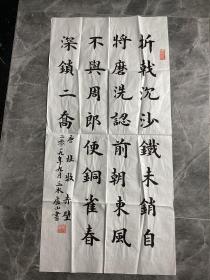 折戟沉沙鐵未銷自
將磨洗認前朝東風
不與周郎便銅雀春
深鎖二喬
唐杜牧赤壁
二零一九年九月